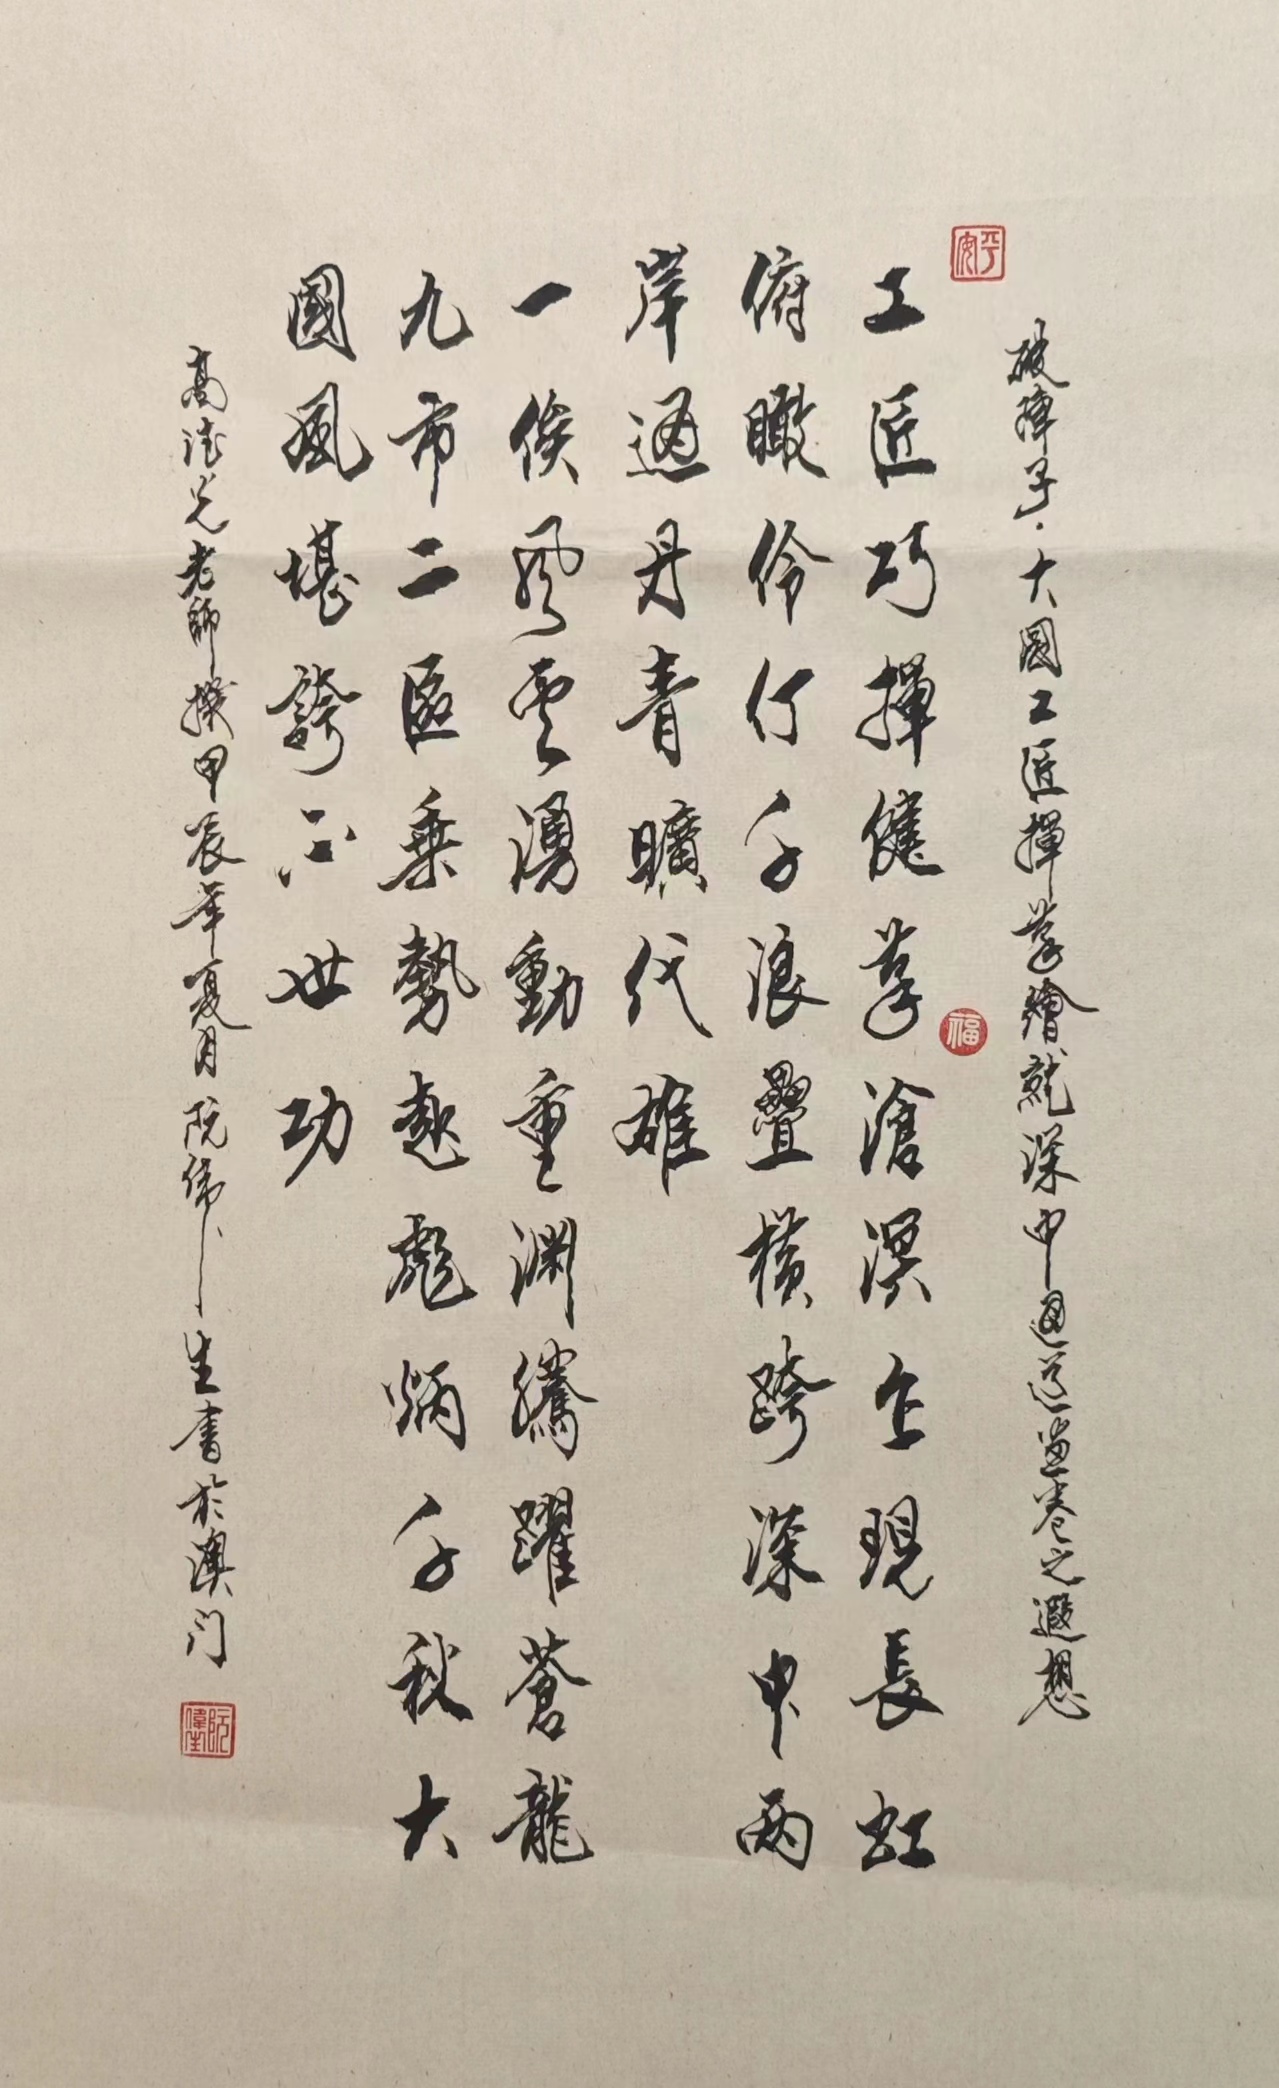 破陣子·大國工匠揮筆繪就深中通道畫卷之遐想
工匠巧揮健筆滄溟乍現長虹
俯瞰伶仃千浪疊橫跨深中两
岸通丹青曠代雄
一俟風雲湧動重淵騰躍蒼龍
九市二區乘勢起彪炳千秋大
國風堪誇不世功
高德光老師撰甲辰年夏月阮偉生書於澳门
平安
福
阮偉